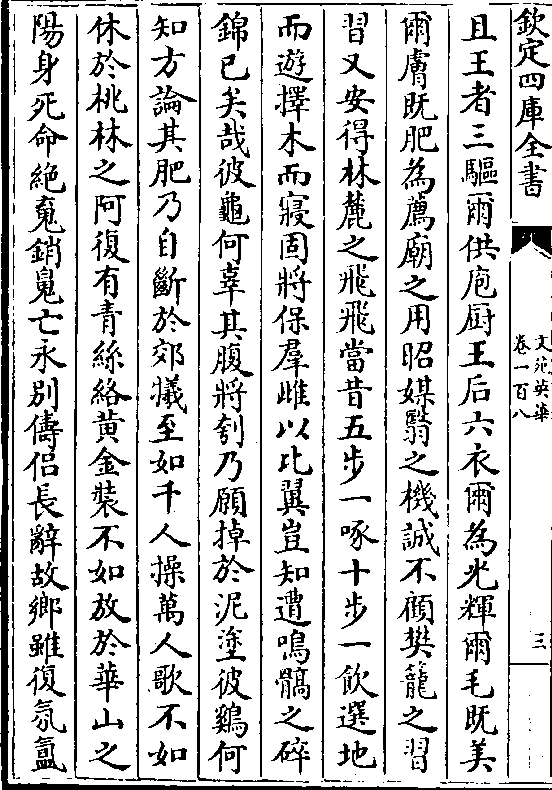 欽定四庫全書
文苑英華
卷一百八
三
且王者三驅爾供庖厨王后六衣爾為光輝爾毛既美
爾膚既肥為薦廟之用昭媒翳之機誠不顧樊籠之習
習又安得林麓之飛飛當昔五步一啄十步一飲選地
而遊擇木而寢固將保羣雌以比翼豈知遭鳴髇之碎
錦已矣哉彼龜何辜其腹將刳乃願掉於泥塗彼鷄何
知方論其肥乃自斷於郊犧至如千人操萬人歌不如
休於桃林之阿復有青絲絡黄金裝不如放於華山之
陽身死命絶䰟銷鬼亡永别儔侣長辭故鄉雖復氛氲